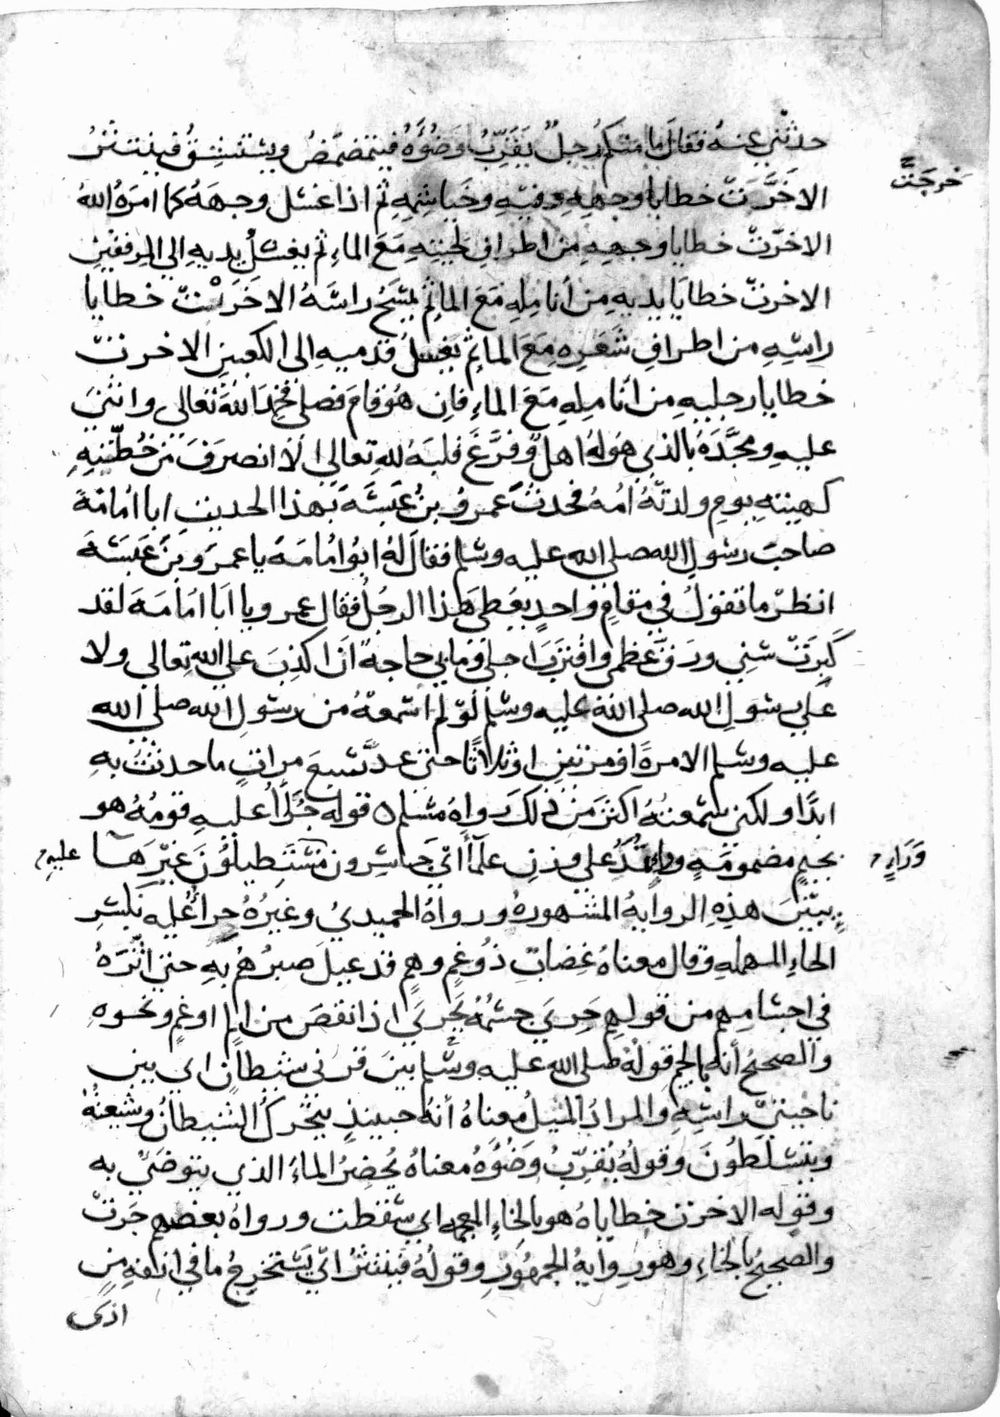 حدثني عنه فقال ما منكم رجل يقرب وضوءه فيتمضمض ويستنشق فينتثر
خرجت
الا خرت خطايا وجهه وفيه وخياشيمه ثم اذا غسل وجهه كما امره الله
الا خرت خطايا وجهه من اطراف لحيته مع الماء ثم يغسل يديه الي المرفقين
الا خرت خطايا يديه من أنامله مع الماء ثم يمسح راسه الا خرت خطايا
راسه من اطراف شعره مع الماء ثم يغسل قدميه الى الكعبين الا خرت
خطايا رجليه من أنامله مع الماء فان هو قام فصلى فحمد الله تعالى واثنى
عليه ومجده بالذي هو له اهل وفرغ قلبه لله تعالي الا انصرف من خطيئته
كهيئته يوم ولدته امه فحدث عمرو بن عبسة بهذا الحديث ابا امامة
صاحب رسول الله صلى الله عليه وسلم فقال له ابو امامة يا عمرو بن عبسة
انظر ما تقول في مقام واحد يعطى هذا الرجل فقال عمرو يا ابا امامة لقد
كبرت سني ورق عظمي واقترب اجلي وما بي حاجة ان اكذب على الله تعالى ولا
على رسول الله صلى الله عليه وسلم لو لم اسمعه من رسول الله صلى الله
عليه وسلم الا مرة او مرتين او ثلاثا حتى عد سبع مرات ما حدثت به
ابدا ولكني سمعته اكثر من ذلك رواه مسلم قوله جرآء عليه قومه هو
بجيم مضمومة وبالمد على وزن علمآء اي جاسرون مستطيلون غير ها
وراء
عليه
يبين هذه الرواية المشهورة ورواه الحميدي وغيره حرآء عليه بكسر
الحاء المهملة وقال معناه غضاب ذو غم وهم قد عيل صبرهم به حتى اثر
في اجسامهم من قولهم حري جسمه يحري اذا نقص من الم او غم ونحوه
والصحيح أنه بالجيم قوله صلى الله عليه وسلم بين قرني شيطان اي بين
ناحيتي راسه والمراد المثيل معناه أنه حينئذ يتحرك الشيطان وشيعته
ويتسلطون وقوله يقرب وضوءه معناه يحضر الماء الذي يتوضئ به
وقوله الا خرت خطاياه هو بالخاء المعجمة اي سقطت ورواه بعضهم جرت
والصحيح بالخاء وهو رواية الجمهور وقوله فينتثر اي يستخرج ما في انفه من
اذى